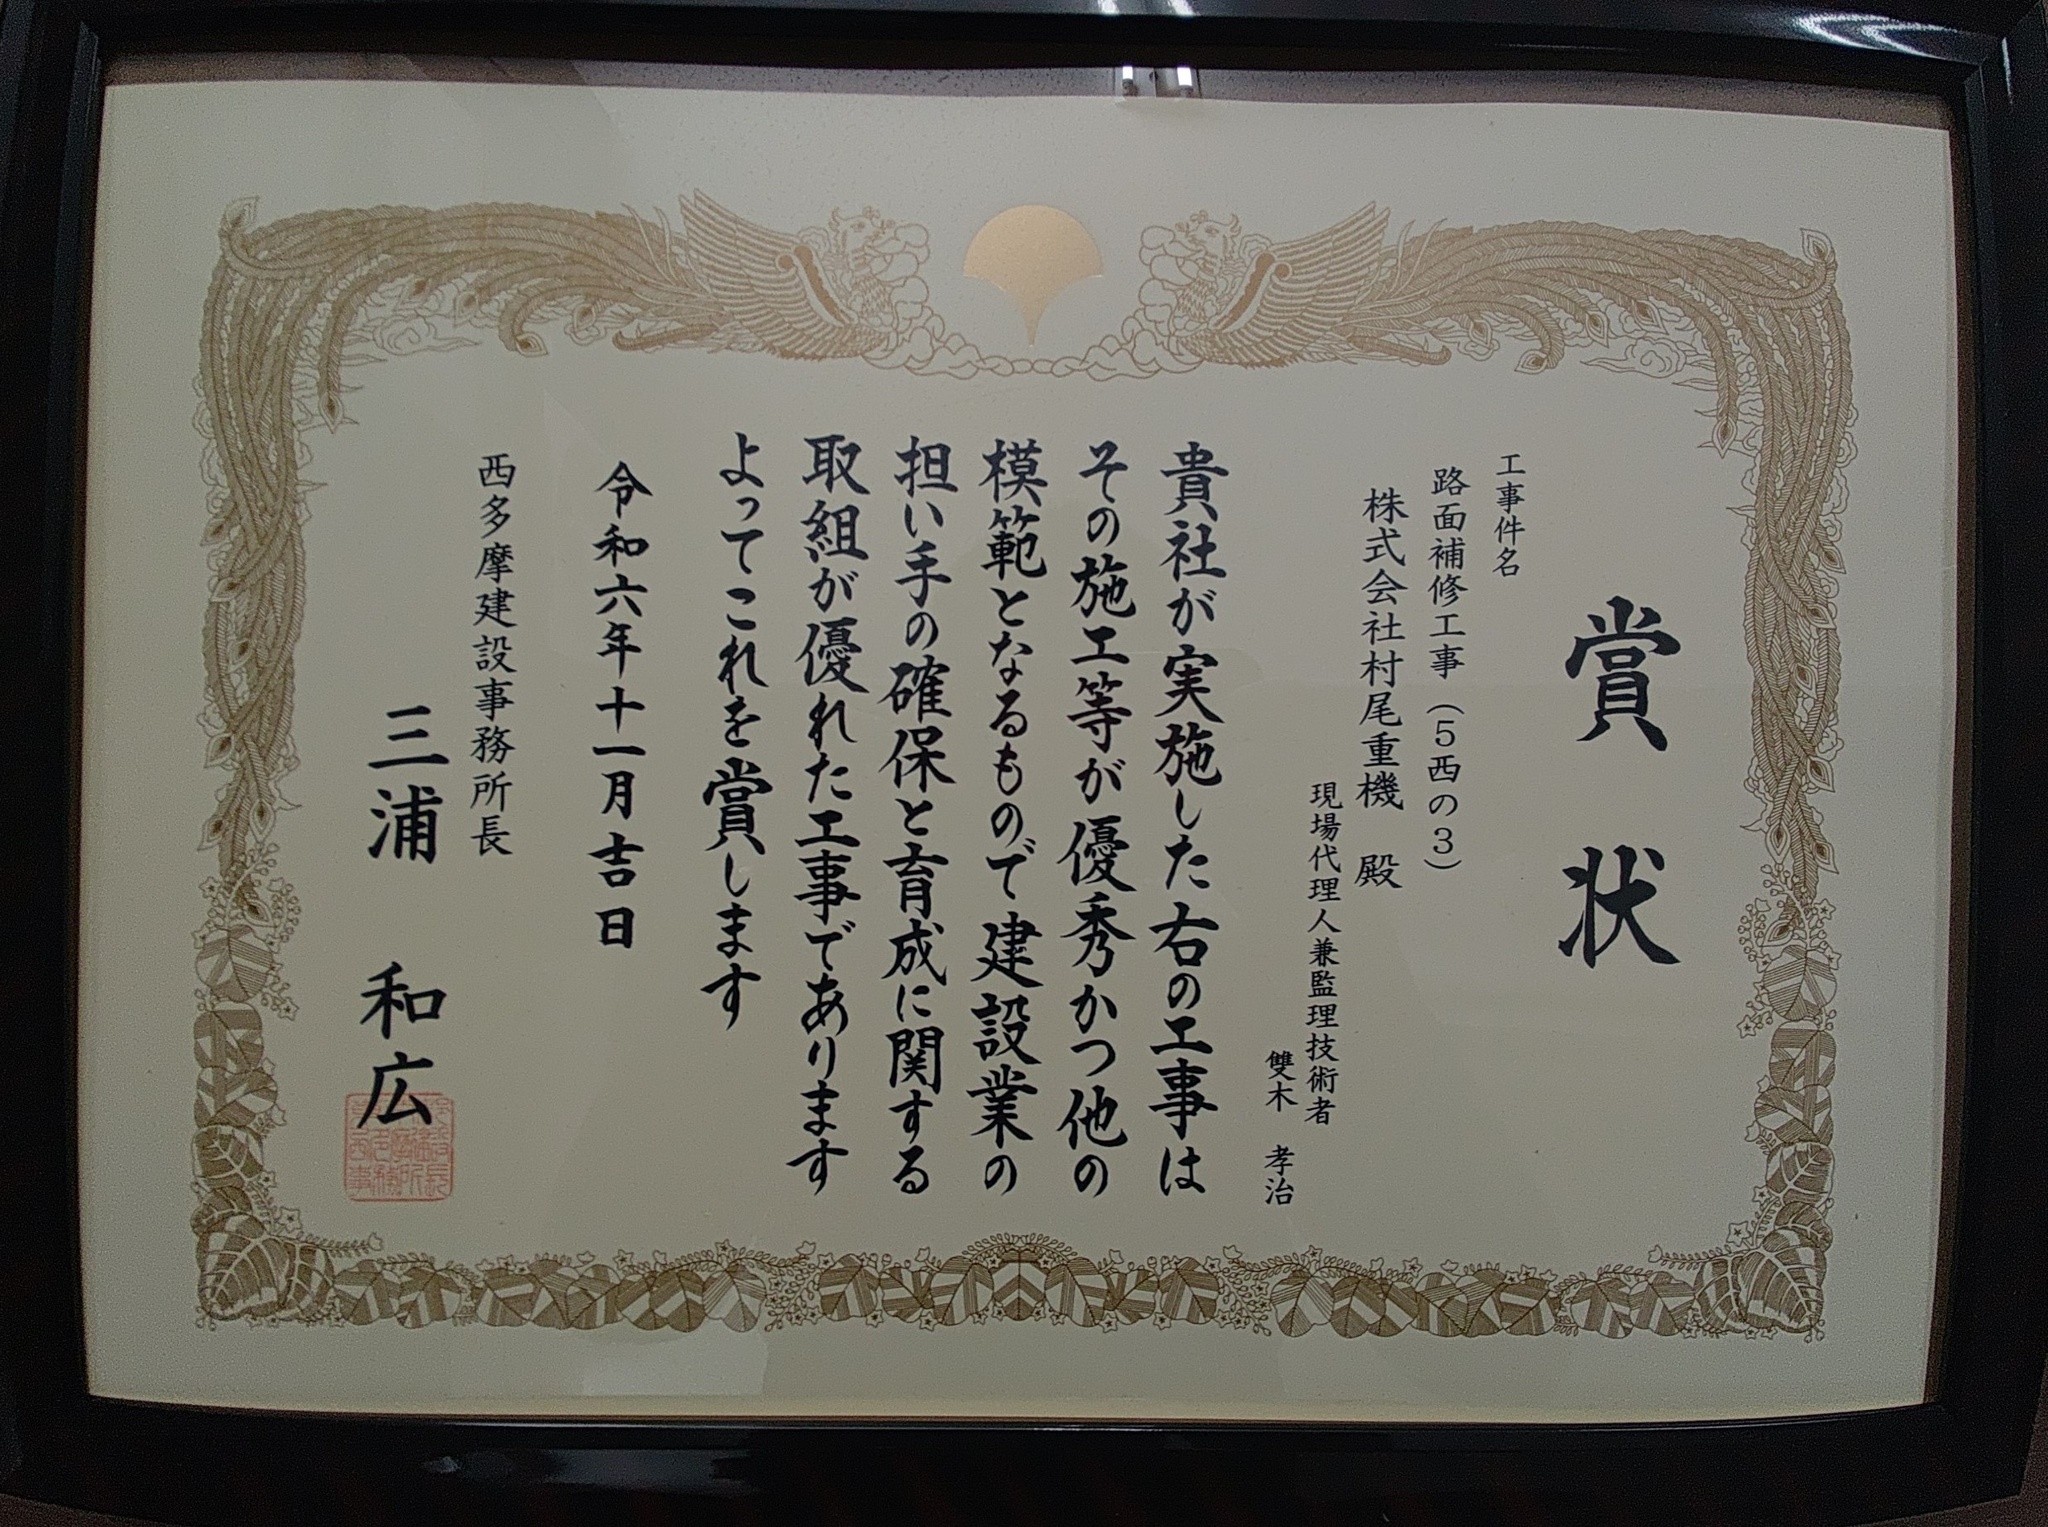 賞状
工事件名
路面補修工事（５西の３）
株式会社村尾重機　殿
現場代理人兼監理技術者
雙木　孝治
貴社が実施した右の工事は
その施工等が優秀かつ他の
模範となるもので建設業の
担い手の確保と育成に関する
取組が優れた工事であります
よってこれを賞します
令和六年十一月吉日
西多摩建設事務所長
三浦　和広